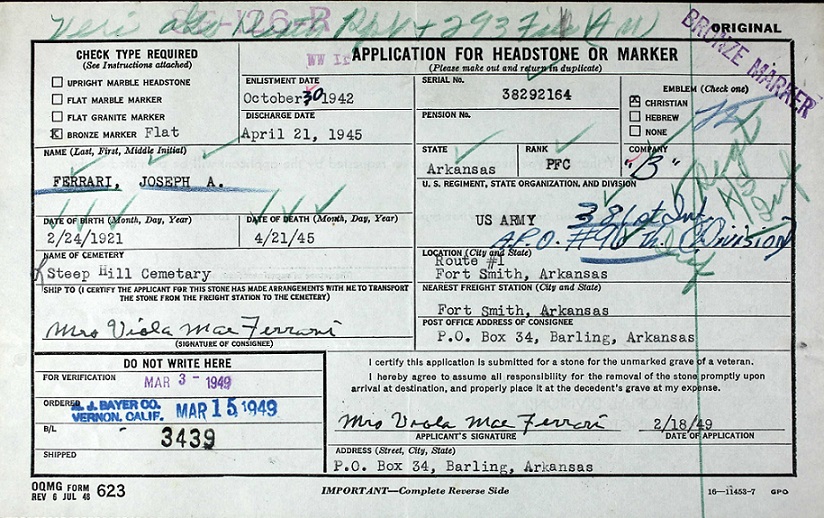 ORIGINAL
BRONZE MARKER
CHECK TYPE REQUIRED
(See Instructions attached)
UPRIGHT MARBLE HEADSTONE
FLAT MARBLE MARKER
FLAT GRANITE MARKER
BRONZE MARKER Flat
APPLICATION FOR HEADSTONE OR MARKER
(Please make out and return in duplicate)
ENLISTMENT DATE
October 30 1942
DISCHARGE DATE
April 21, 1945
SERIAL No.
38292164
PENSION No.
EMBLEM (Check one)
CHRISTIAN
HEBREW
NONE
NAME (Last, First, Middle Initial)
FERRARI, JOSEPH A.
STATE
Arkansas
RANK
PFC
COMPANY
"B"
U. S. REGIMENT, STATE ORGANIZATION, AND DIVISION
US ARMY
381st Inf.
A.P.O. #96th Division
DATE OF BIRTH (Month, Day, Year)
2/24/1921
DATE OF DEATH (Month, Day, Year)
4/21/45
NAME OF CEMETERY
Steep Hill Cemetary
LOCATION (City and State)
Route #1
Fort Smith, Arkansas
SHIP TO (I CERTIFY THE APPLICANT FOR THIS STONE HAS MADE ARRANGEMENTS WITH ME TO TRANSPORT
THE STONE FROM THE FREIGHT STATION TO THE CEMETERY)
Mrs Viola Mae Ferrari
(SIGNATURE OF CONSIGNEE)
NEAREST FREIGHT STATION (City and State)
Fort Smith, Arkansas
POST OFFICE ADDRESS OF CONSIGNEE
P.O. Box 34, Barling, Arkansas
DO NOT WRITE HERE
FOR VERIFICATION
MAR 3 - 1949
ORDERED
BAYER CO.
VERNON, CALIF. MAR 15 1949
B/L
3439
SHIPPED
I certify this application is submitted for a stone for the unmarked grave of a veteran.
I hereby agree to assume all responsibility for the removal of the stone promptly upon
arrival at destination, and properly place it at the decedent's grave at my expense.
Mrs Viola Mae Ferrari
2/18/49
APPLICANT'S SIGNATURE
DATE OF APPLICATION
ADDRESS (Street, City, State)
P.O. Box 34, Barling, Arkansas
OQMG FORM
REV 6 JUL 48 623
IMPORTANT—Complete Reverse Side
16—11453-7 GPO